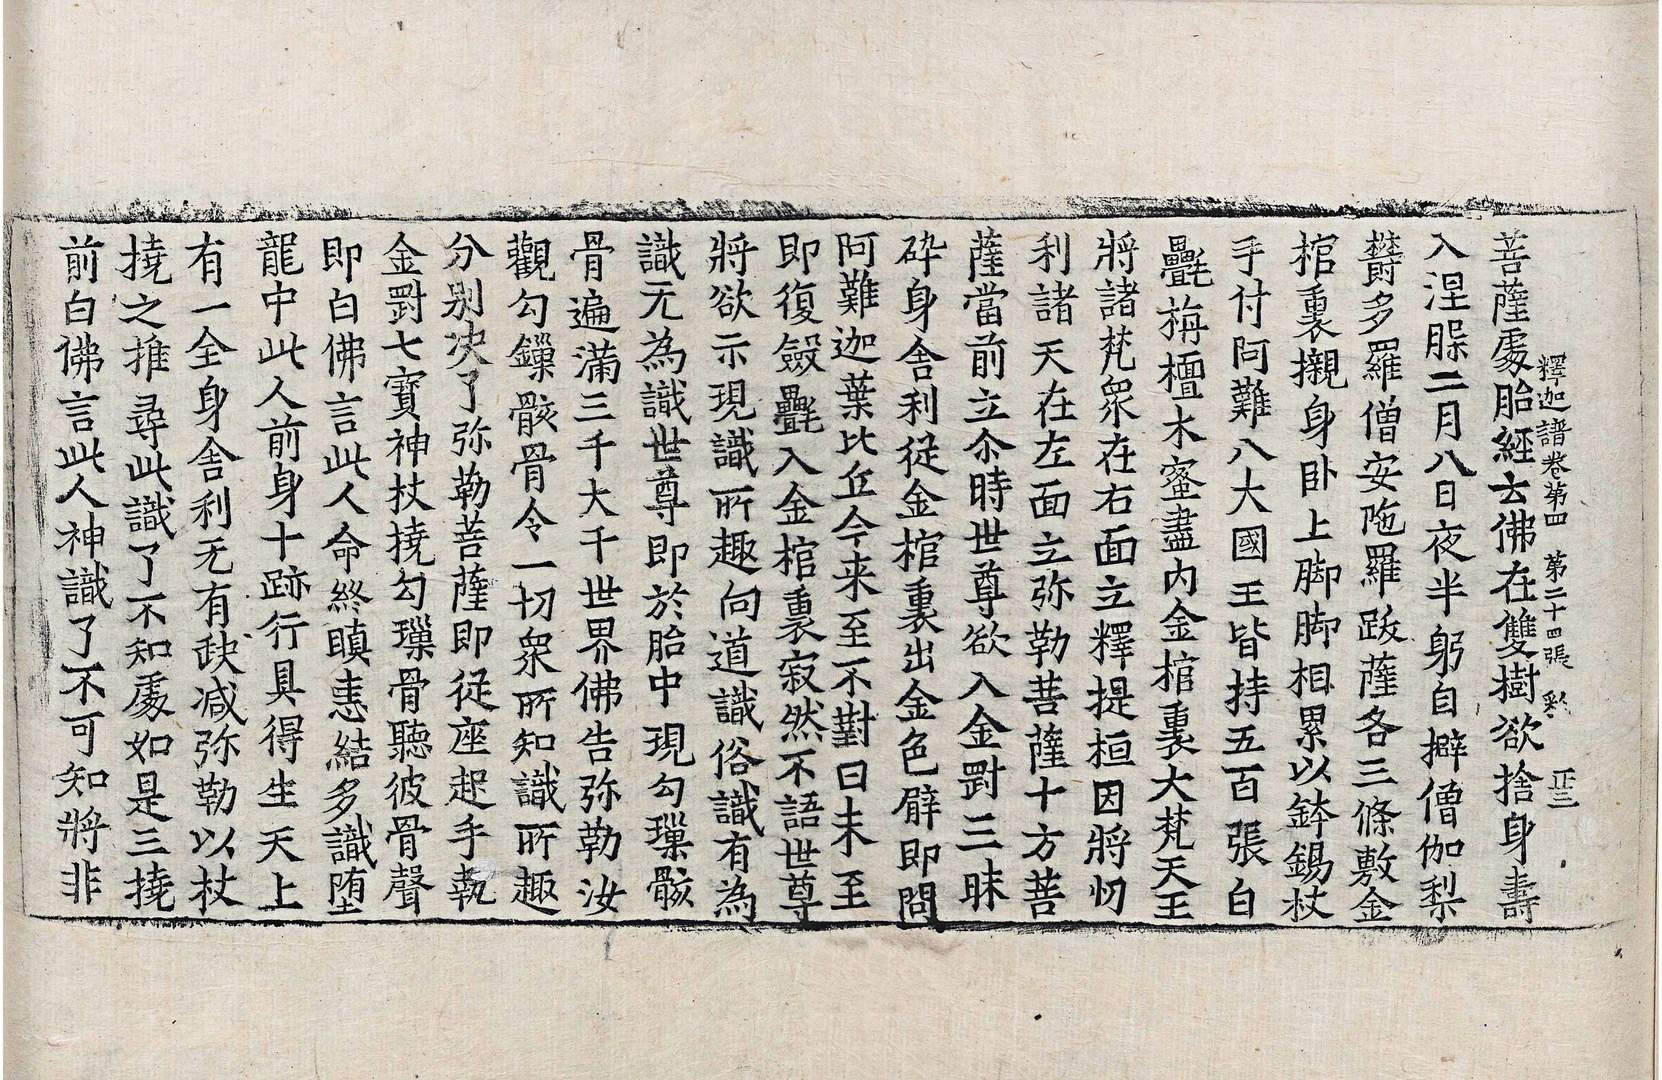 菩薩處胎經云佛在雙樹欲捨身壽
釋迦譜卷第四　第二十四張　彩
入涅槃二月八日夜半躬自襞僧伽梨
欝多羅僧安陁羅跋薩各三條敷金
棺裏襯身卧上脚脚相累以鉢錫杖
手付阿難八大國王皆持五百張白
㲲栴檀木蜜盡内金棺裏大梵天王
將諸梵衆在右面立釋提桓因將忉
利諸天在左面立弥勒菩薩十方菩
薩當前立尒時世尊欲入金罸三昧
碎身舍利從金棺裏出金色臂即問
阿難迦葉比丘今来至不對曰未至
即復斂㲲入金棺裏寂然不語世尊
將欲示現識所趣向道識俗識有為
識无為識世尊即於胎中現勾璅骸
骨遍滿三千大千世界佛告弥勒汝
觀勾鏁骸骨令一切衆所知識所趣
分别决了弥勒菩薩即從座起手執
金罸七寳神杖撓勾璅骨聽彼骨聲
即白佛言此人命終瞋恚結多識堕
龍中此人前身十跡行具得生天上
有一全身舍利无有缺减弥勒以杖
撓之推尋此識了不知處如是三撓
前白佛言此人神識了不可知將非